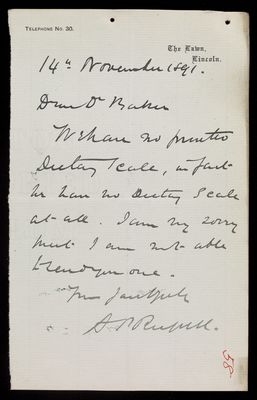 TELEPHONE No. 30.
The Lawn,
Lincoln.
14th November 1891.
Dear Dr Baker
We have no printed
Dietary Scale, in fact
we have no Dietary Scale
at all. I am very sorry
that I am not able
to send you one.
Yours faithfully
A. P. Russell.
58